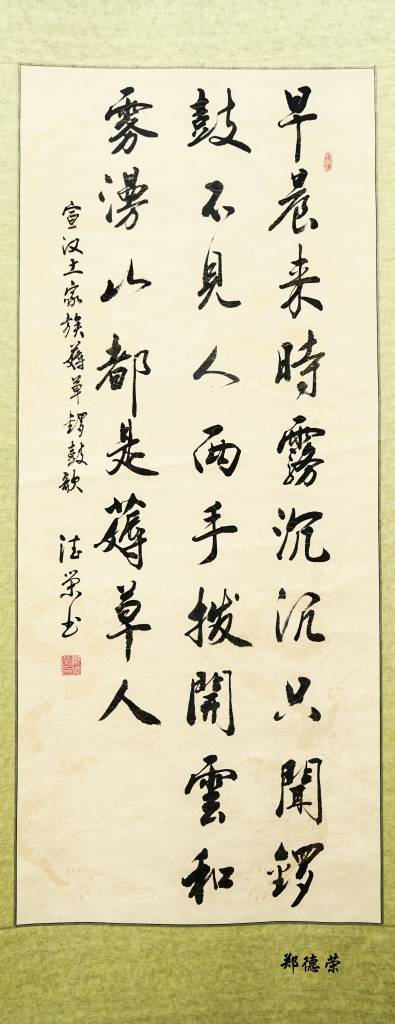 早晨来時霧沉沉只聞鑼
鼓不见人两手拨開雲和
雾漫山都是薅草人
宣汉土家族薅草锣鼓歌 德荣书
郑德荣